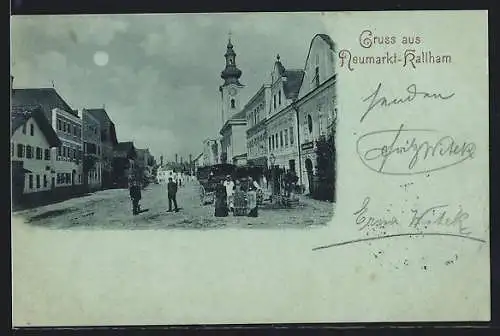 Gruss aus
Neumarkt-Kallham
senden
Fritz Witek
Erna Witek